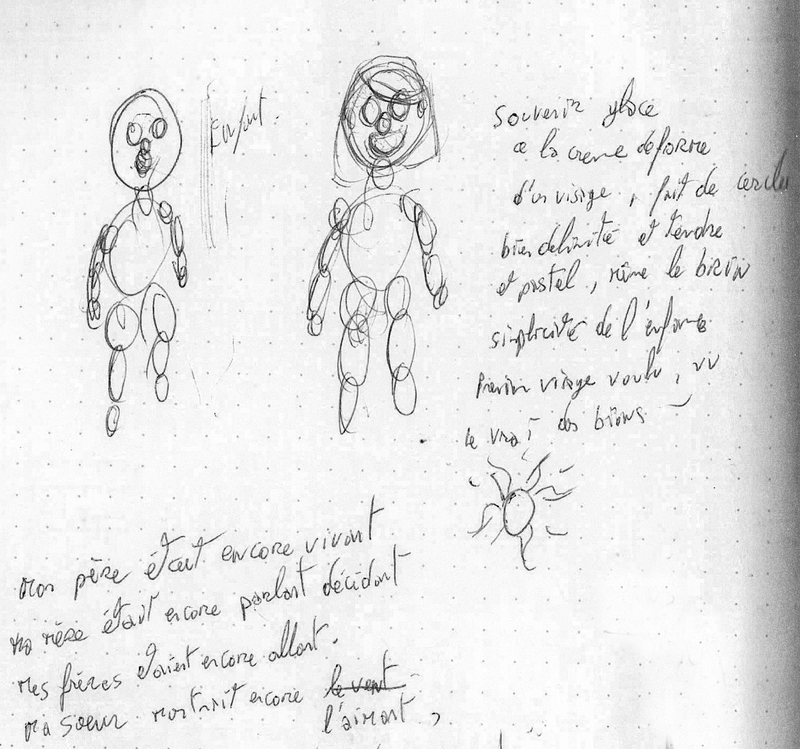 Enfant.
Souvenir glace
a la creme deforme
d'un visage, fait de cercles
bien delimité et tendre
et pastel, même le
simplicité de l'enfance
visage voulu, vu
le vrai des
mon père était encore vivant
ma mère était encore parlant décidant
mes frères étaient encore allant.
ma soeur montrait encore le vent
l'aimant,